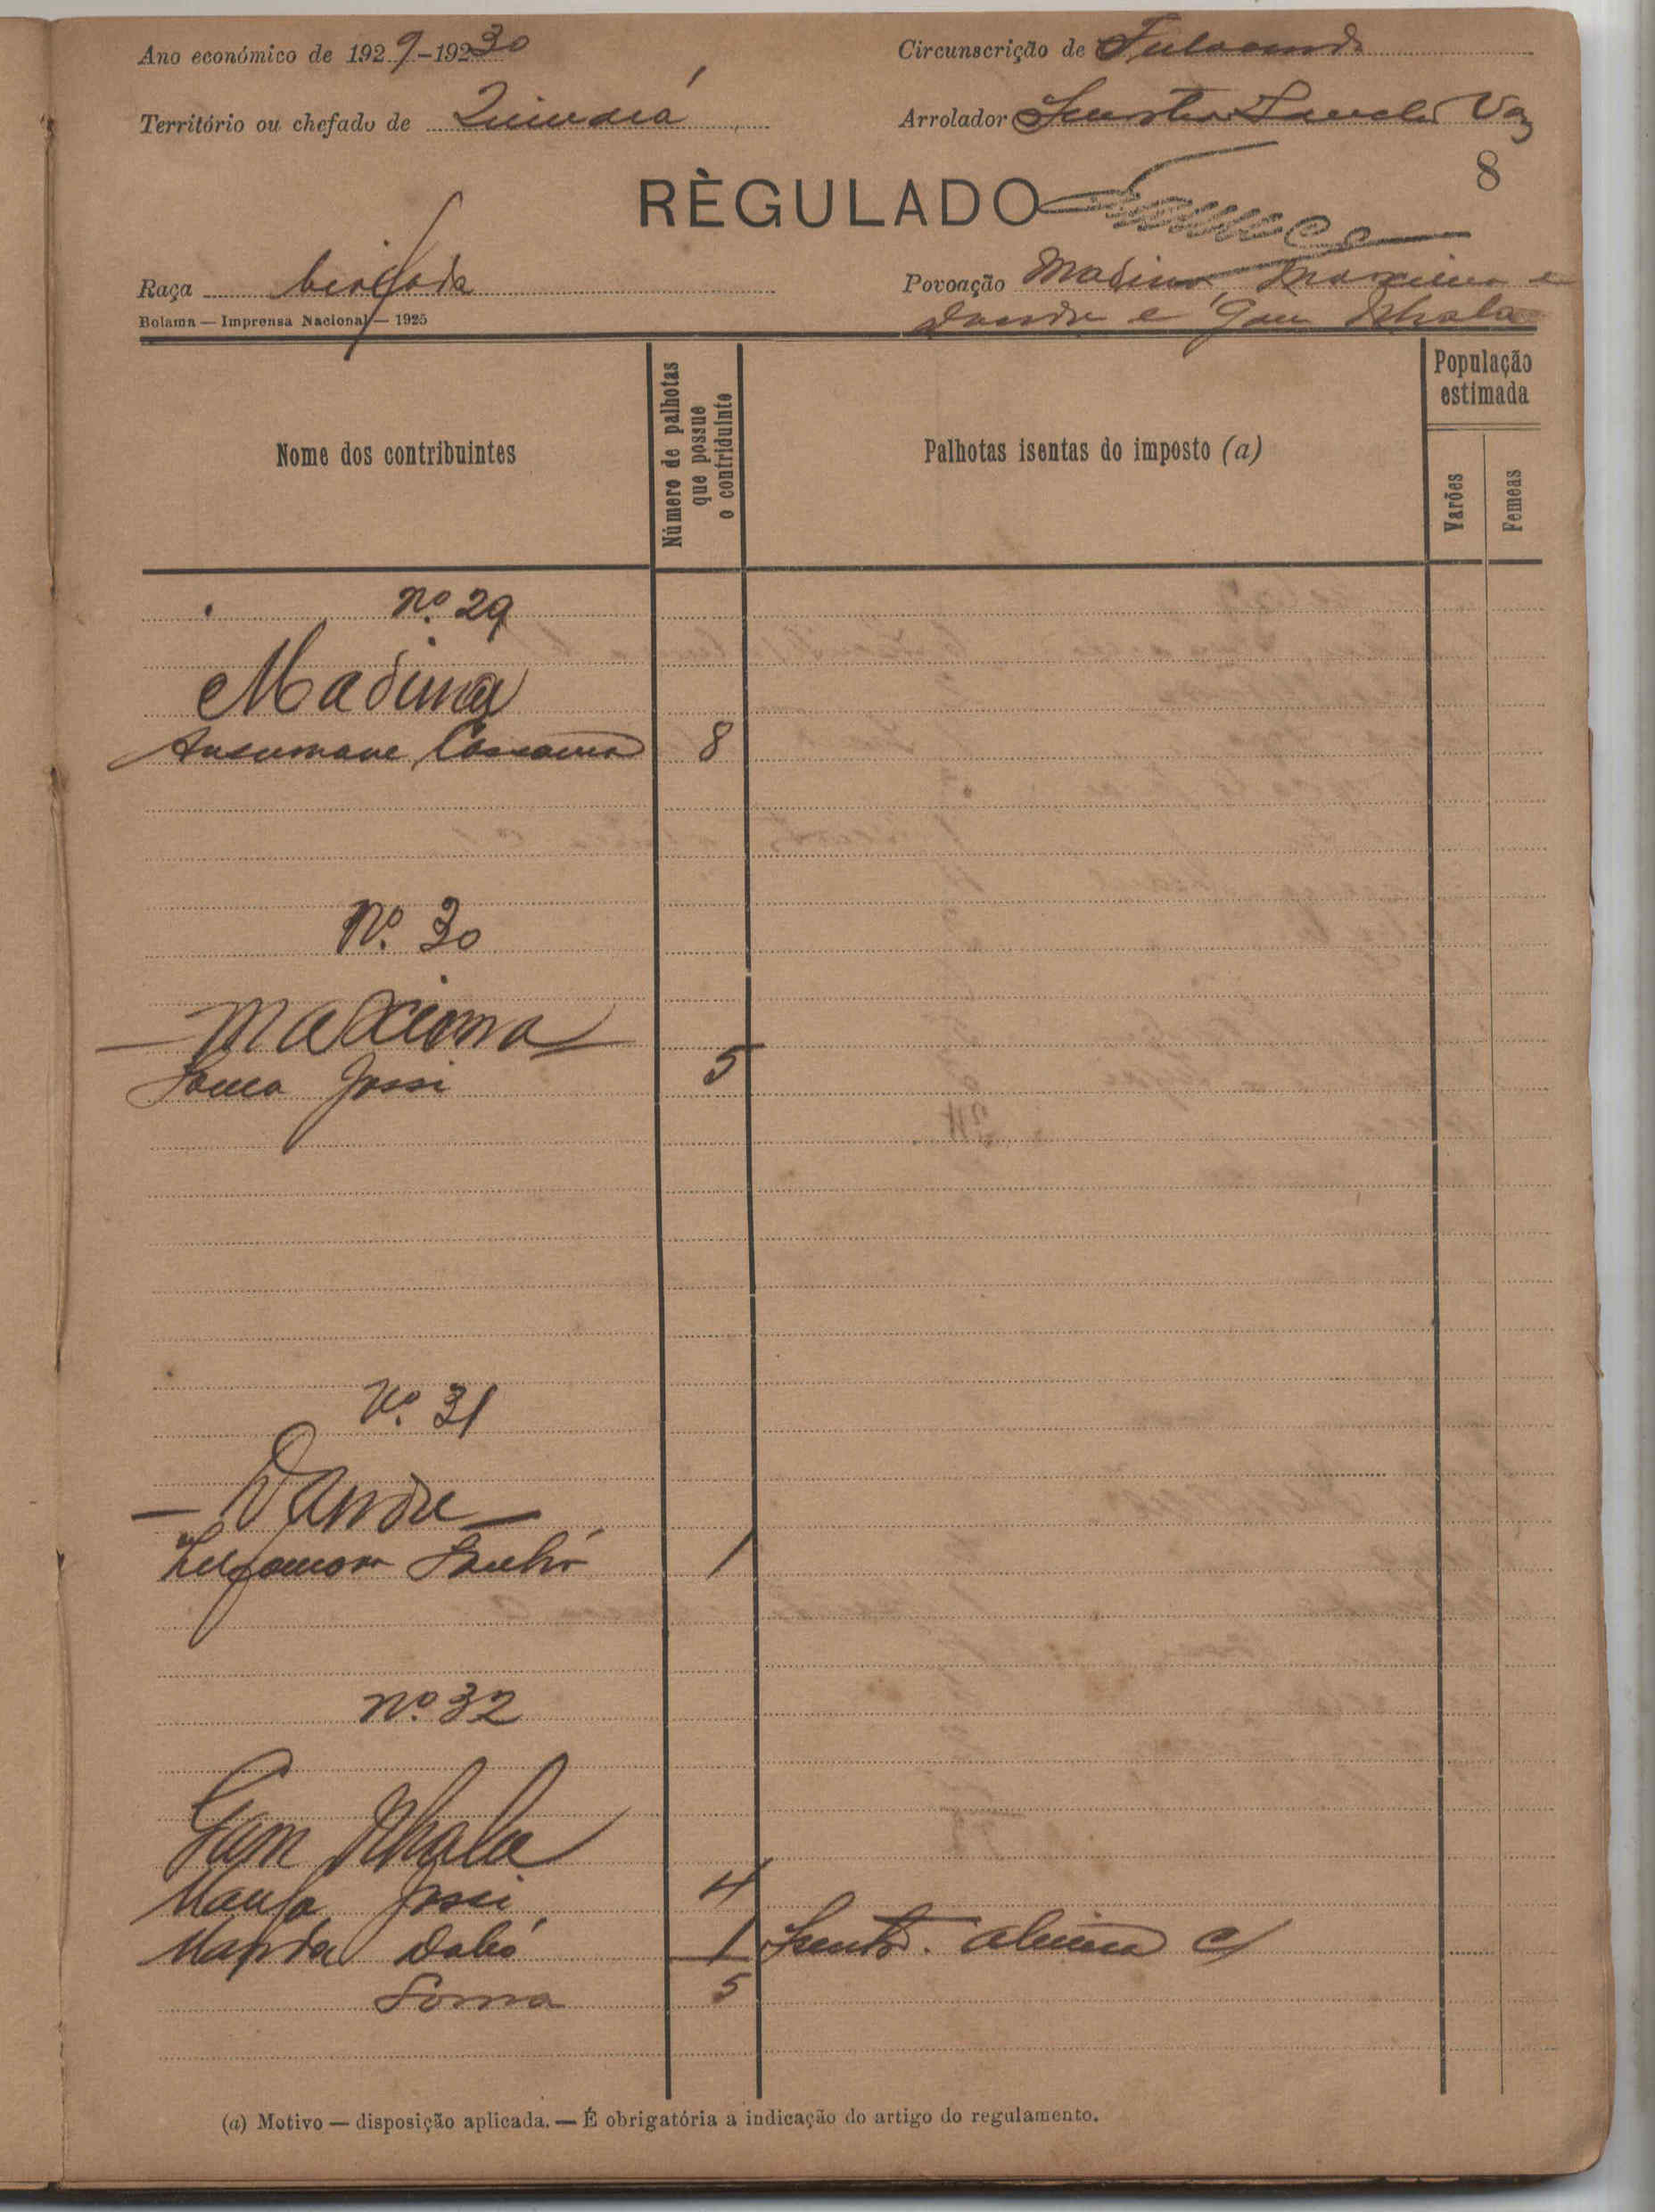 Ano económico de 1929-1930
Circunscrição de Fulacunda
Território ou chefado de Quinará
Arrolador Vaz
8
RÈGULADO
Raça beafada
Povoação Madina, Maxima e
Dandu e Gam Nhala
Bolama — Imprensa Nacional — 1925
Nome dos contribuintes
Número de palhotas
que possue
o contriduinte
Palhotas isentas do imposto (a)
População
estimada
Varões
Femeas
Nº 29
Madina
Ansumane Cassamá 8
Nº 30
Maxioma
Jassi 5
Nº 31
Dandu
1
Nº 32
Gam Nhala
Mansa Jassi 4
Dabó 1 Isento. alinea c/
Soma 5
(a) Motivo — disposição aplicada. — É obrigatória a indicação do artigo do regulamento.